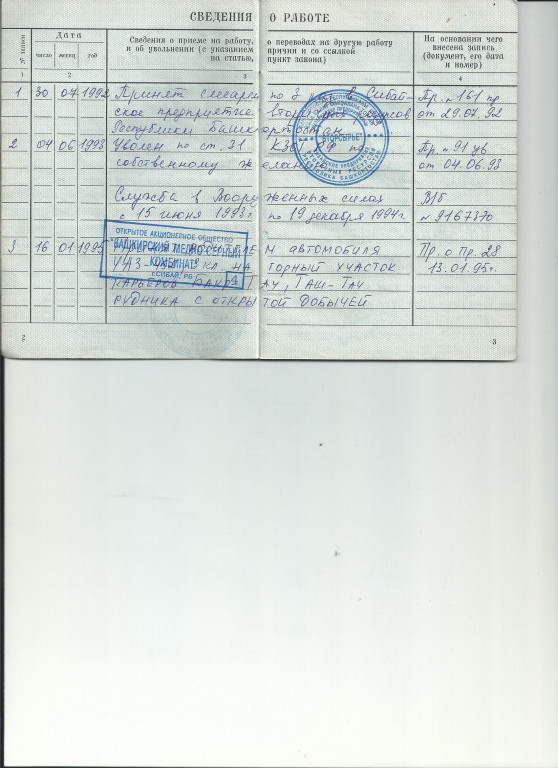 СВЕДЕНИЯ О РАБОТЕ
№ записи
Дата
число месяц год
Сведения о приеме на работу, о переводах на другую работу
и об увольнении (с указанием причин и со ссылкой
на статью, пункт закона)
На основании чего
внесена запись
(документ, его дата
и номер)
1 2 3 4
1 30 07 1992 Принят слесарем по 3 раз. в Сибай- Пр. № 161 пр
ское предприятие вторичных ресурсов от 29.07.92
Республики Башкортостан
2 04 06 1993 Уволен по ст. 31 КЗоТ РФ по Пр. № 91 ув
собственному желанию от 04.06.93
ВТОРСЫРЬЕ
Служба в Вооруженных силах В/б
с 15 июня 1993г. по 19 декабря 1994г № 9167370
ОТКРЫТОЕ АКЦИОНЕРНОЕ ОБЩЕСТВО
"БАШКИРСКИЙ МЕДНО-СЕРНЫЙ
КОМБИНАТ"
Г.СИБАЙ, РБ 4
3 16 01 1995 водителем автомобиля Пр. о Пр. 28
УАЗ на горный участок 13.01.95г.
карьеров Тау, Таш-Тау
рудника с открытой добычей
2 3